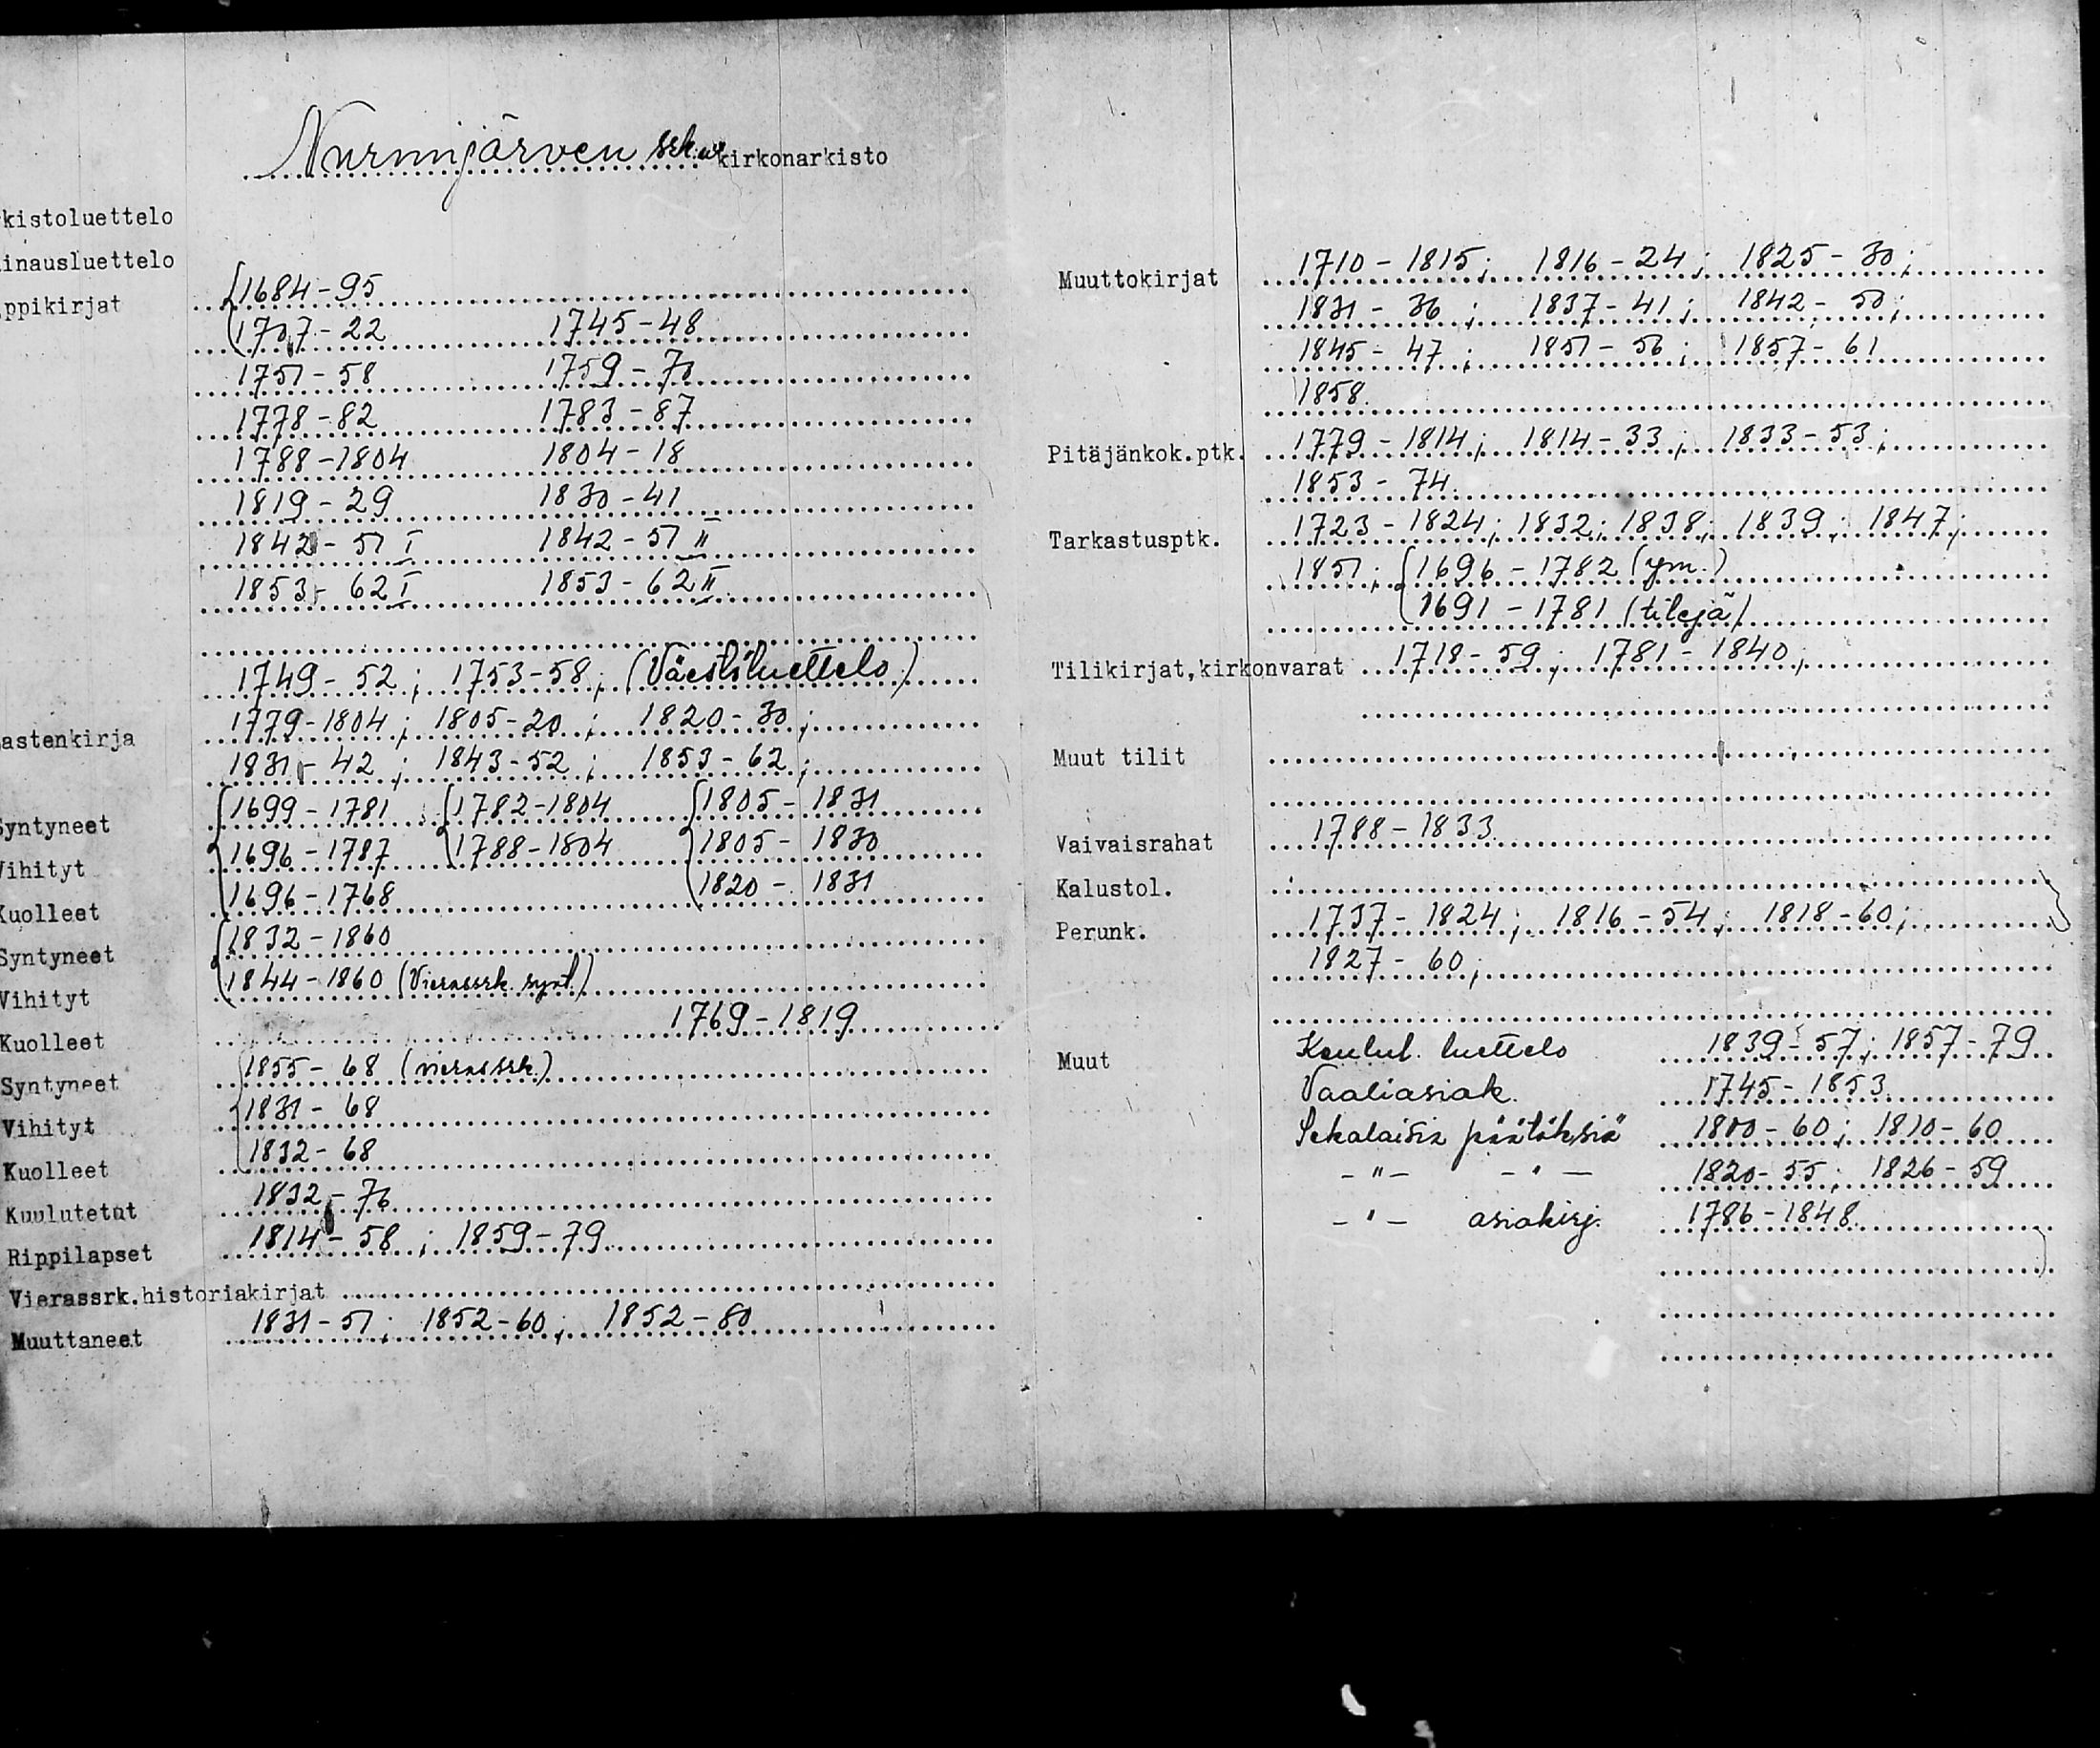 Nurmijärven srk:n kirkonarkisto
kistoluettelo
inausluettelo
ppikirjat 1684-95
1707-22 1745-48
1751-58 1759-70
1778-82 1783-87
1788-1804 1804-18
1819-29 1830-41
1842-51 I 1842-51 II
1853-62 I 1853-62 II
1749-52; 1753-58; (Väestöluettelo)
astenkirja 1779-1804; 1805-20; 1820-30;
1831-42; 1843-52; 1853-62;
Syntyneet 1699-1781 1782-1804 1805-1831
Vihityt 1696-1787 1788-1804 1805-1830
Kuolleet 1696-1768 1820-1831
Syntyneet 1832-1860
Vihityt 1844-1860 (Vierassrk. synt.)
Kuolleet 1769-1819
Syntyneet 1855-68 (vierassrk.)
Vihityt 1831-68
Kuolleet 1832-68
Kuulutetut 1832-76
Rippilapset 1814-58; 1859-79
Vierassrk.historiakirjat
Muuttaneet 1831-51; 1852-60; 1852-80
Muuttokirjat 1710-1815; 1816-24; 1825-30;
1831-36; 1837-41; 1842-50;
1845-47; 1851-56; 1857-61
1858.
Pitäjänkok.ptk. 1779-1814; 1814-33; 1833-53;
1853-74.
Tarkastusptk. 1723-1824; 1832; 1838; 1839; 1847;
1851; 1696-1782 (ym.)
1691-1781 (tilejä)
Tilikirjat,kirkonvarat 1718-59; 1781-1840;
Muut tilit
Vaivaisrahat 1788-1833.
Kalustol.
Perunk. 1737-1824; 1816-54; 1818-60;
1827-60;
Muut Koulul. luettelo 1839-57; 1857-79
Vaaliasiak. 1745-1853.
Sekalaisia päätöksiä 1800-60; 1810-60
-"- -"- 1820-55; 1826-59
-"- asiakirj. 1786-1848.